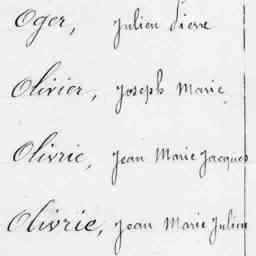 Oger, Julien Pierre
Olivier, Joseph Marie
Olivrie, Jean Marie Jacques
Olivrie, Jean Marie Julien